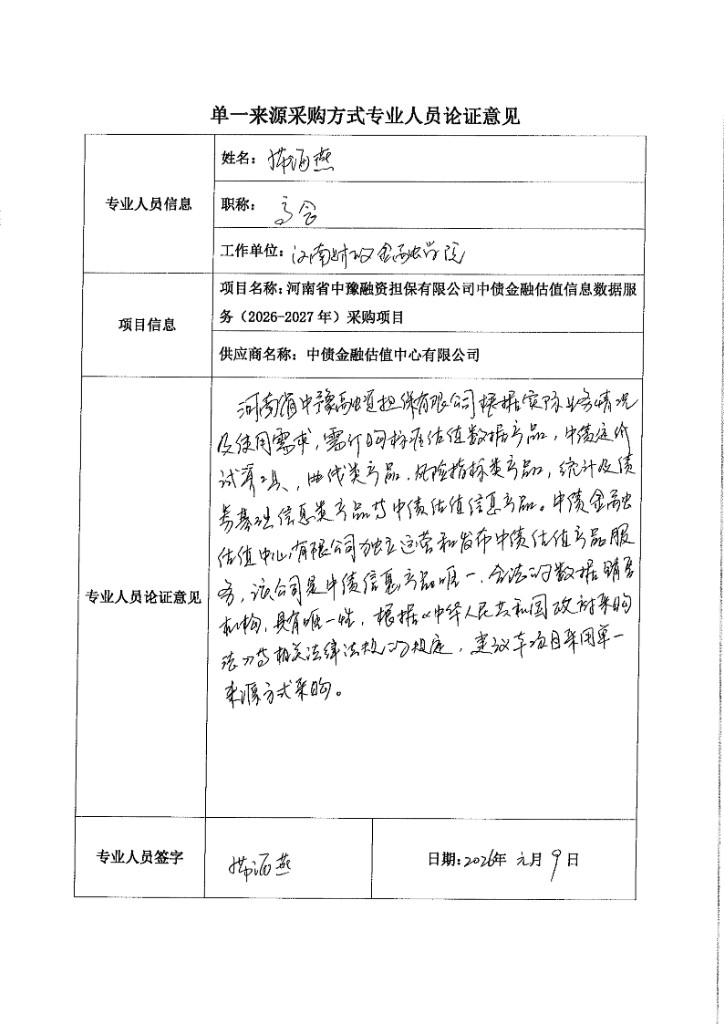 单一来源采购方式专业人员论证意见
专业人员信息
姓名：海燕
职称：高会
工作单位：河南财政金融学院
项目信息
项目名称：河南省中豫融资担保有限公司中债金融估值信息数据服
务（2026-2027年）采购项目
供应商名称：中债金融估值中心有限公司
专业人员论证意见
河南省中豫融资担保有限公司根据实际业务情况
及使用需求，需订购标准估值数据产品，中债定价
试算工具、曲线类产品、风险指标类产品，统计及债
券基础信息类产品等中债估值信息产品。中债金融
估值中心有限公司独立运营和发布中债估值产品服
务，该公司是中债信息产品唯一、合法的数据销售
机构，具有唯一性，根据《中华人民共和国政府采购
法》等相关法律法规的规定，建议本项目采用单一
来源方式采购。
专业人员签字
海燕
日期：2026年 元月 9 日